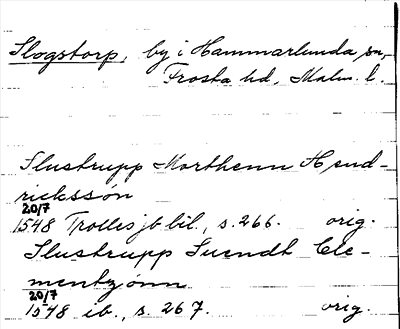 Slogstorp, by i Hammarlunda sn,
Frosta hd, Malm. l.
Slustrupp Morthenn Hend-
rickssøn
20/7
1548 Trolles jb bil., s. 266. orig.
Slustrupp Suendt Cle-
mentzønn
20/7
1548 ib., s. 267. orig.